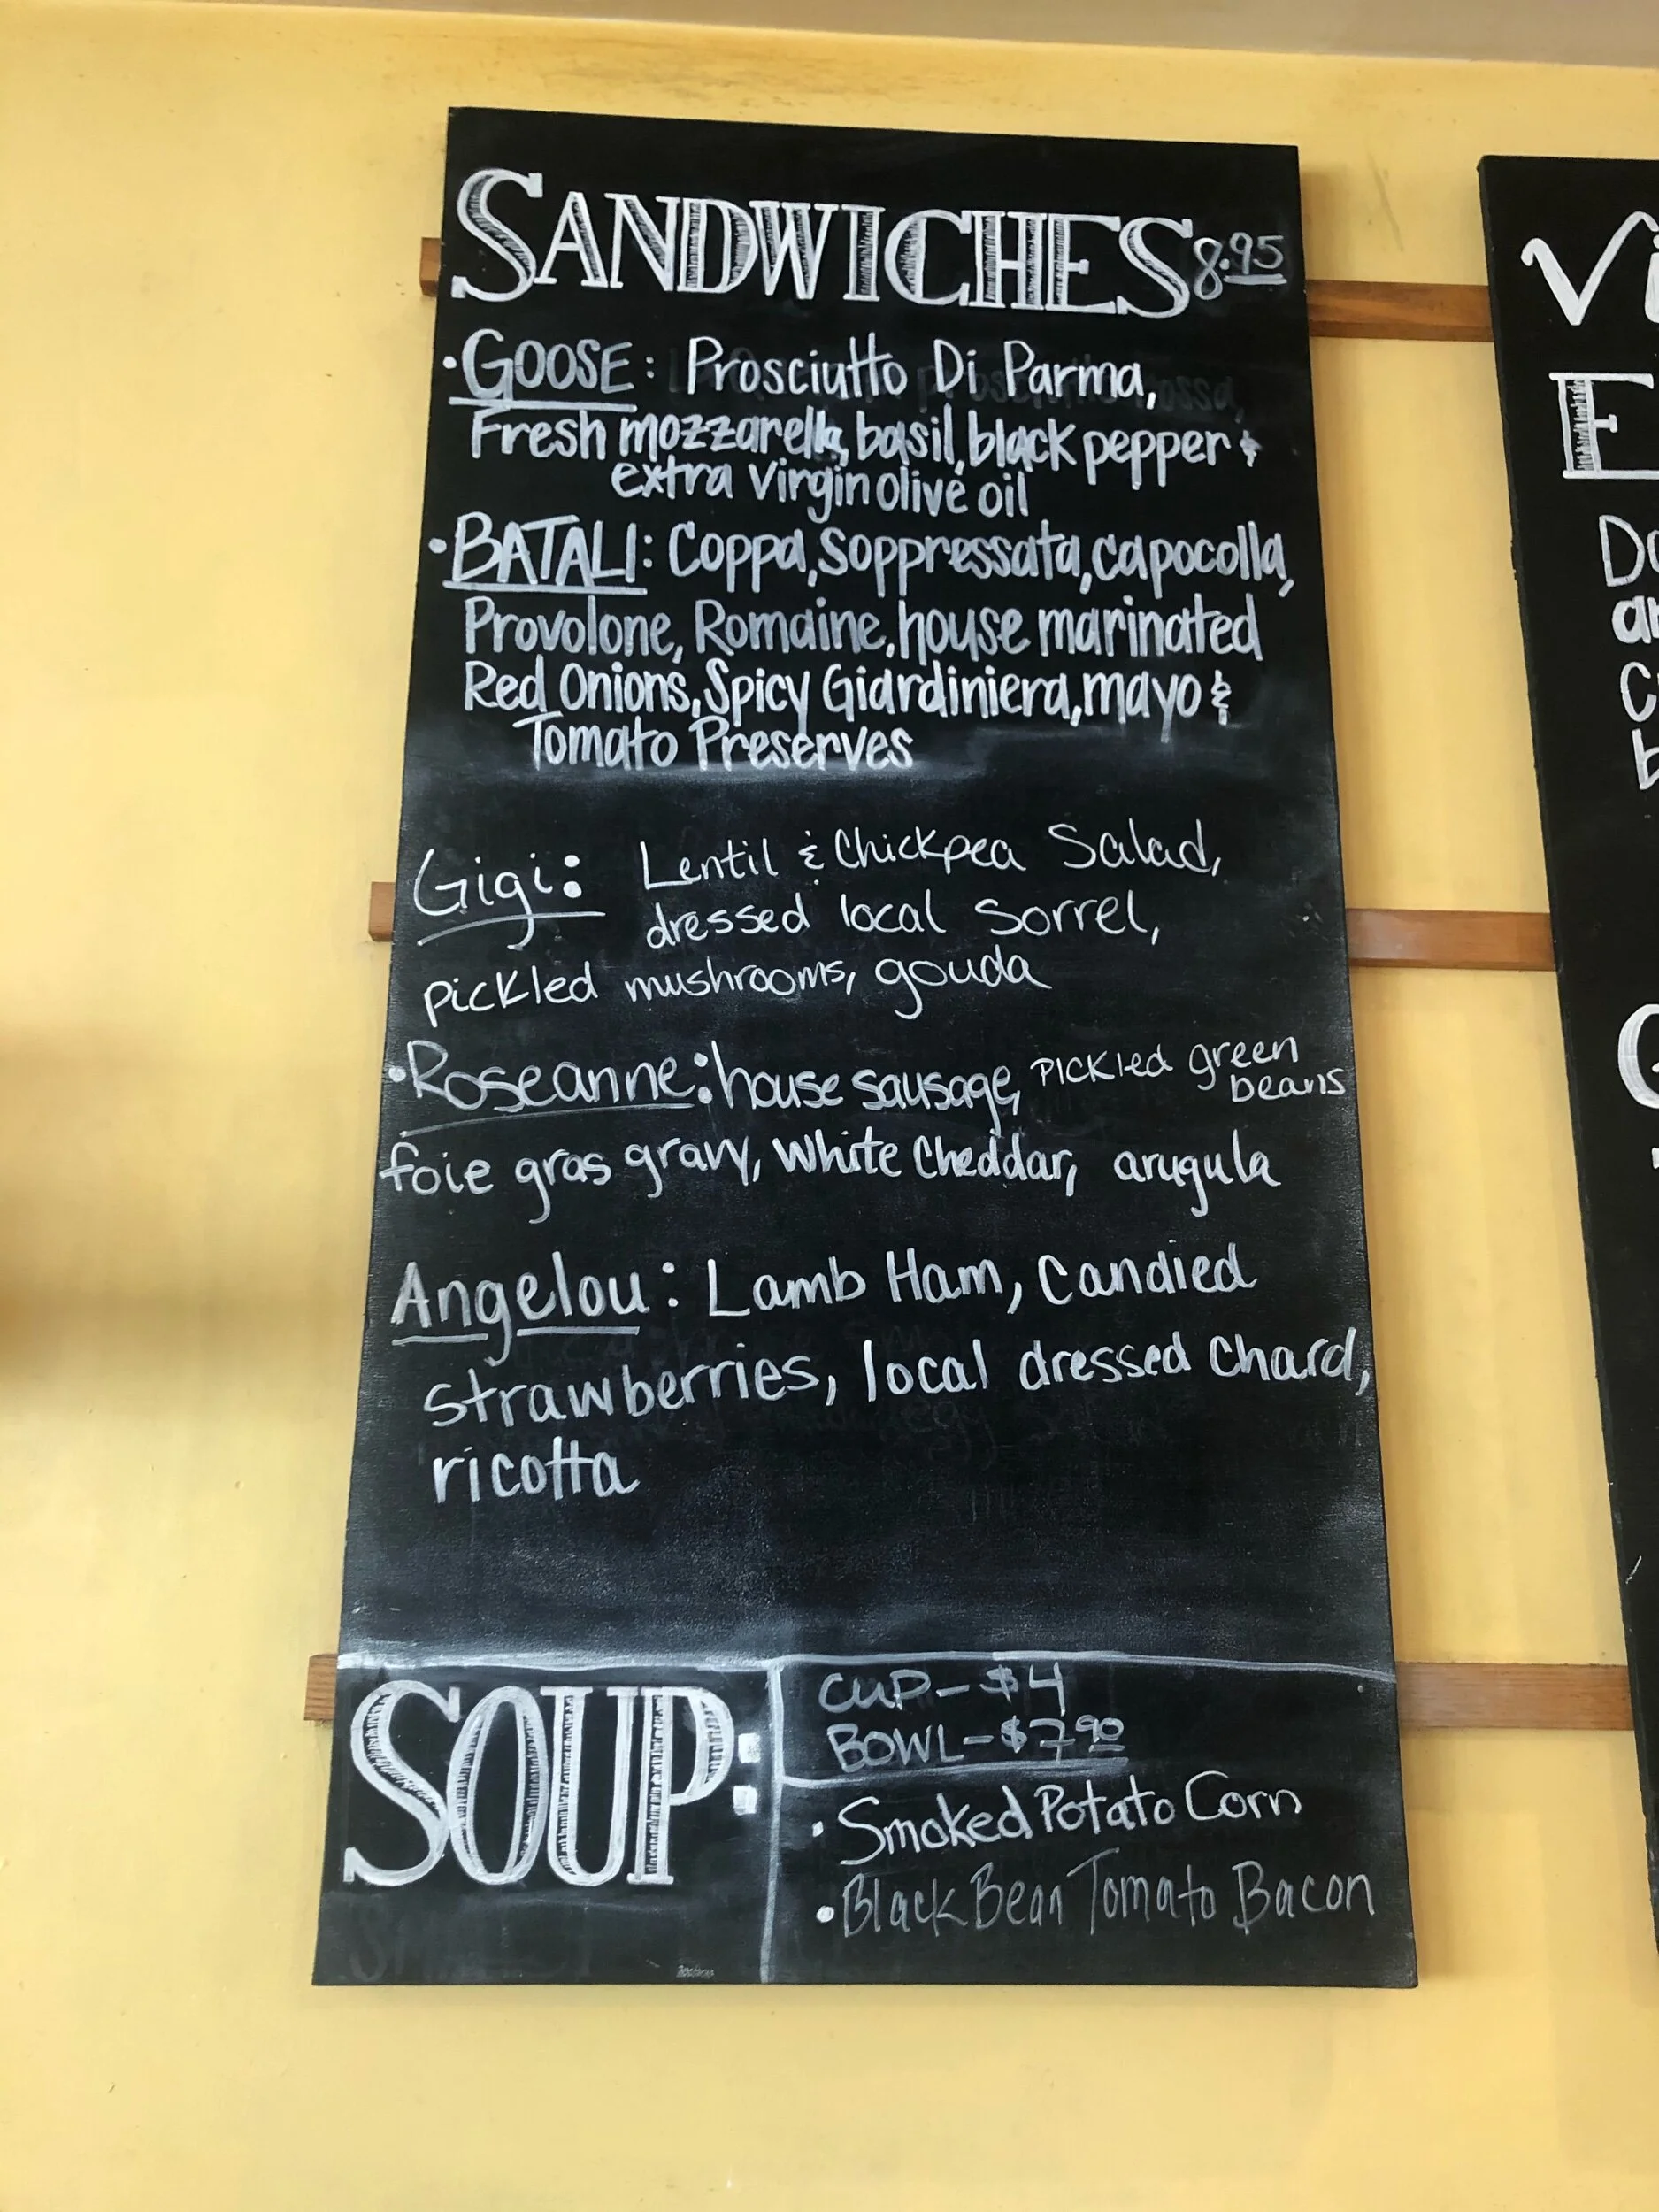 SANDWICHES 8.95
• GOOSE: Prosciutto Di Parma,
Fresh mozzarella, basil, black pepper &
extra virgin olive oil
• BATALI: Coppa, Soppressata, capocolla,
Provolone, Romaine, house marinated
Red Onions, Spicy Giardiniera, mayo &
Tomato Preserves
Gigi: Lentil & Chickpea Salad,
dressed local Sorrel,
pickled mushrooms, gouda
• Roseanne: house sausage, PICKled green
beans
foie gras gravy, White Cheddar, arugula
Angelou: Lamb Ham, Candied
strawberries, local dressed Chard,
ricotta
SOUP:
CUP - $4
BOWL - $7.90
• Smoked Potato Corn
• Black Bean Tomato Bacon
Vi
E